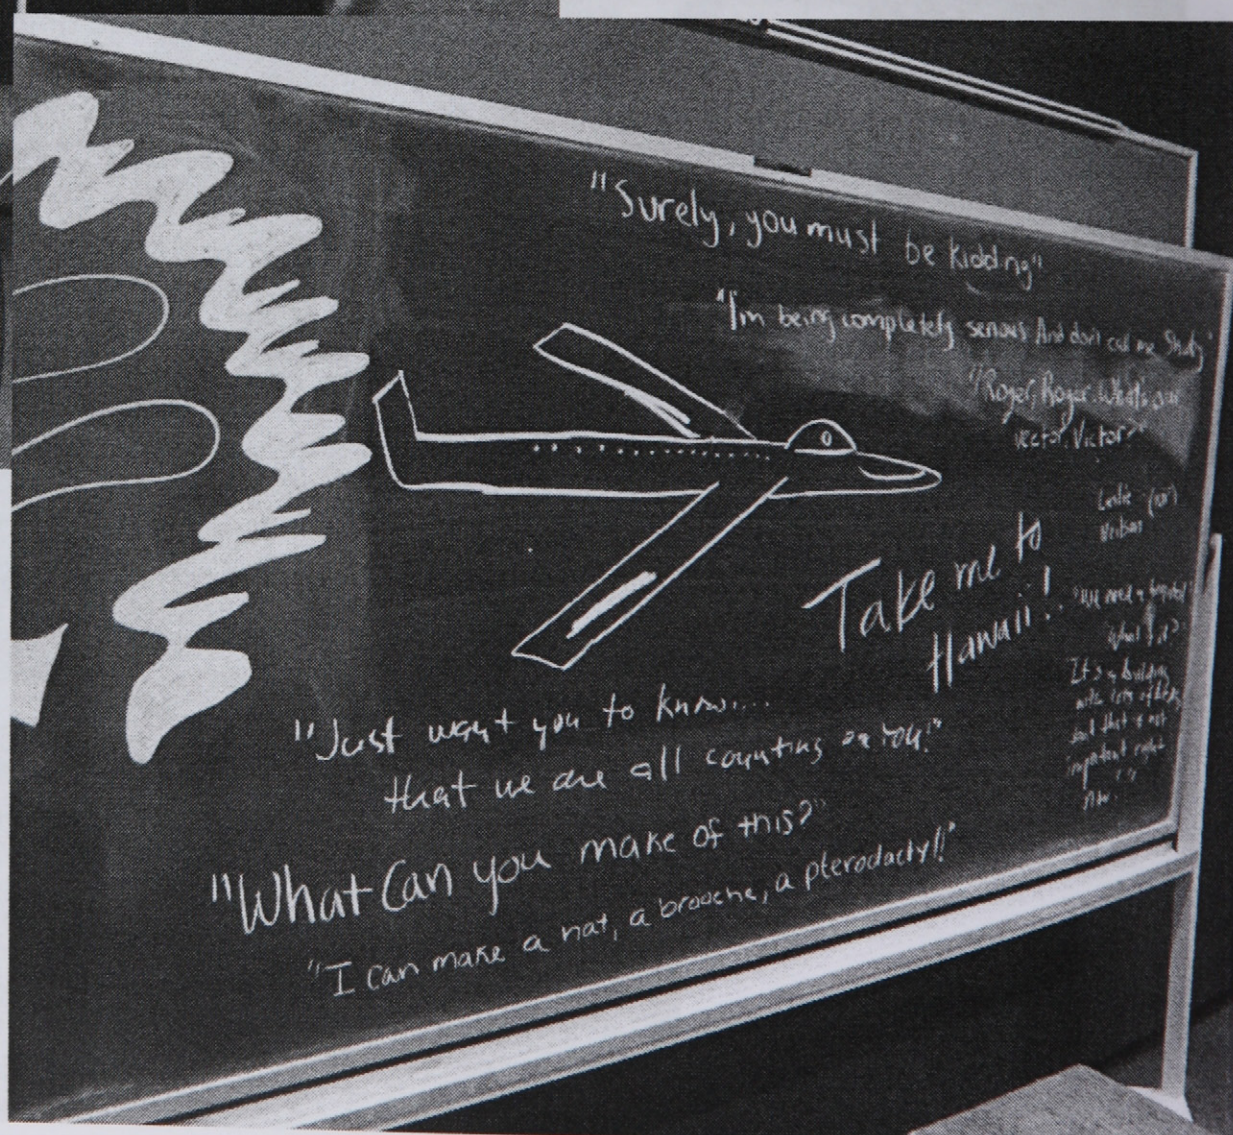 "Surely, you must be kidding"
"I'm being completely serious And don't call me Shirly"
"Roger, Roger. What's our
vector, Victor?"
Leslie
Take me to
Hawaii!
What is it?
It's a building
with lots of beds
but that is not
important right
now."
"Just want you to know...
that we are all counting on You!"
"What Can you make of this?"
"I can make a hat, a brooche, a pterodactyl!"